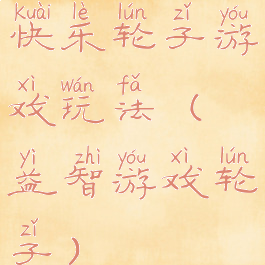 kuài lè lún zǐ yóu
快乐轮子游
xì wán fǎ
戏玩法（
yì zhì yóu xì lún
益智游戏轮
zǐ
子）